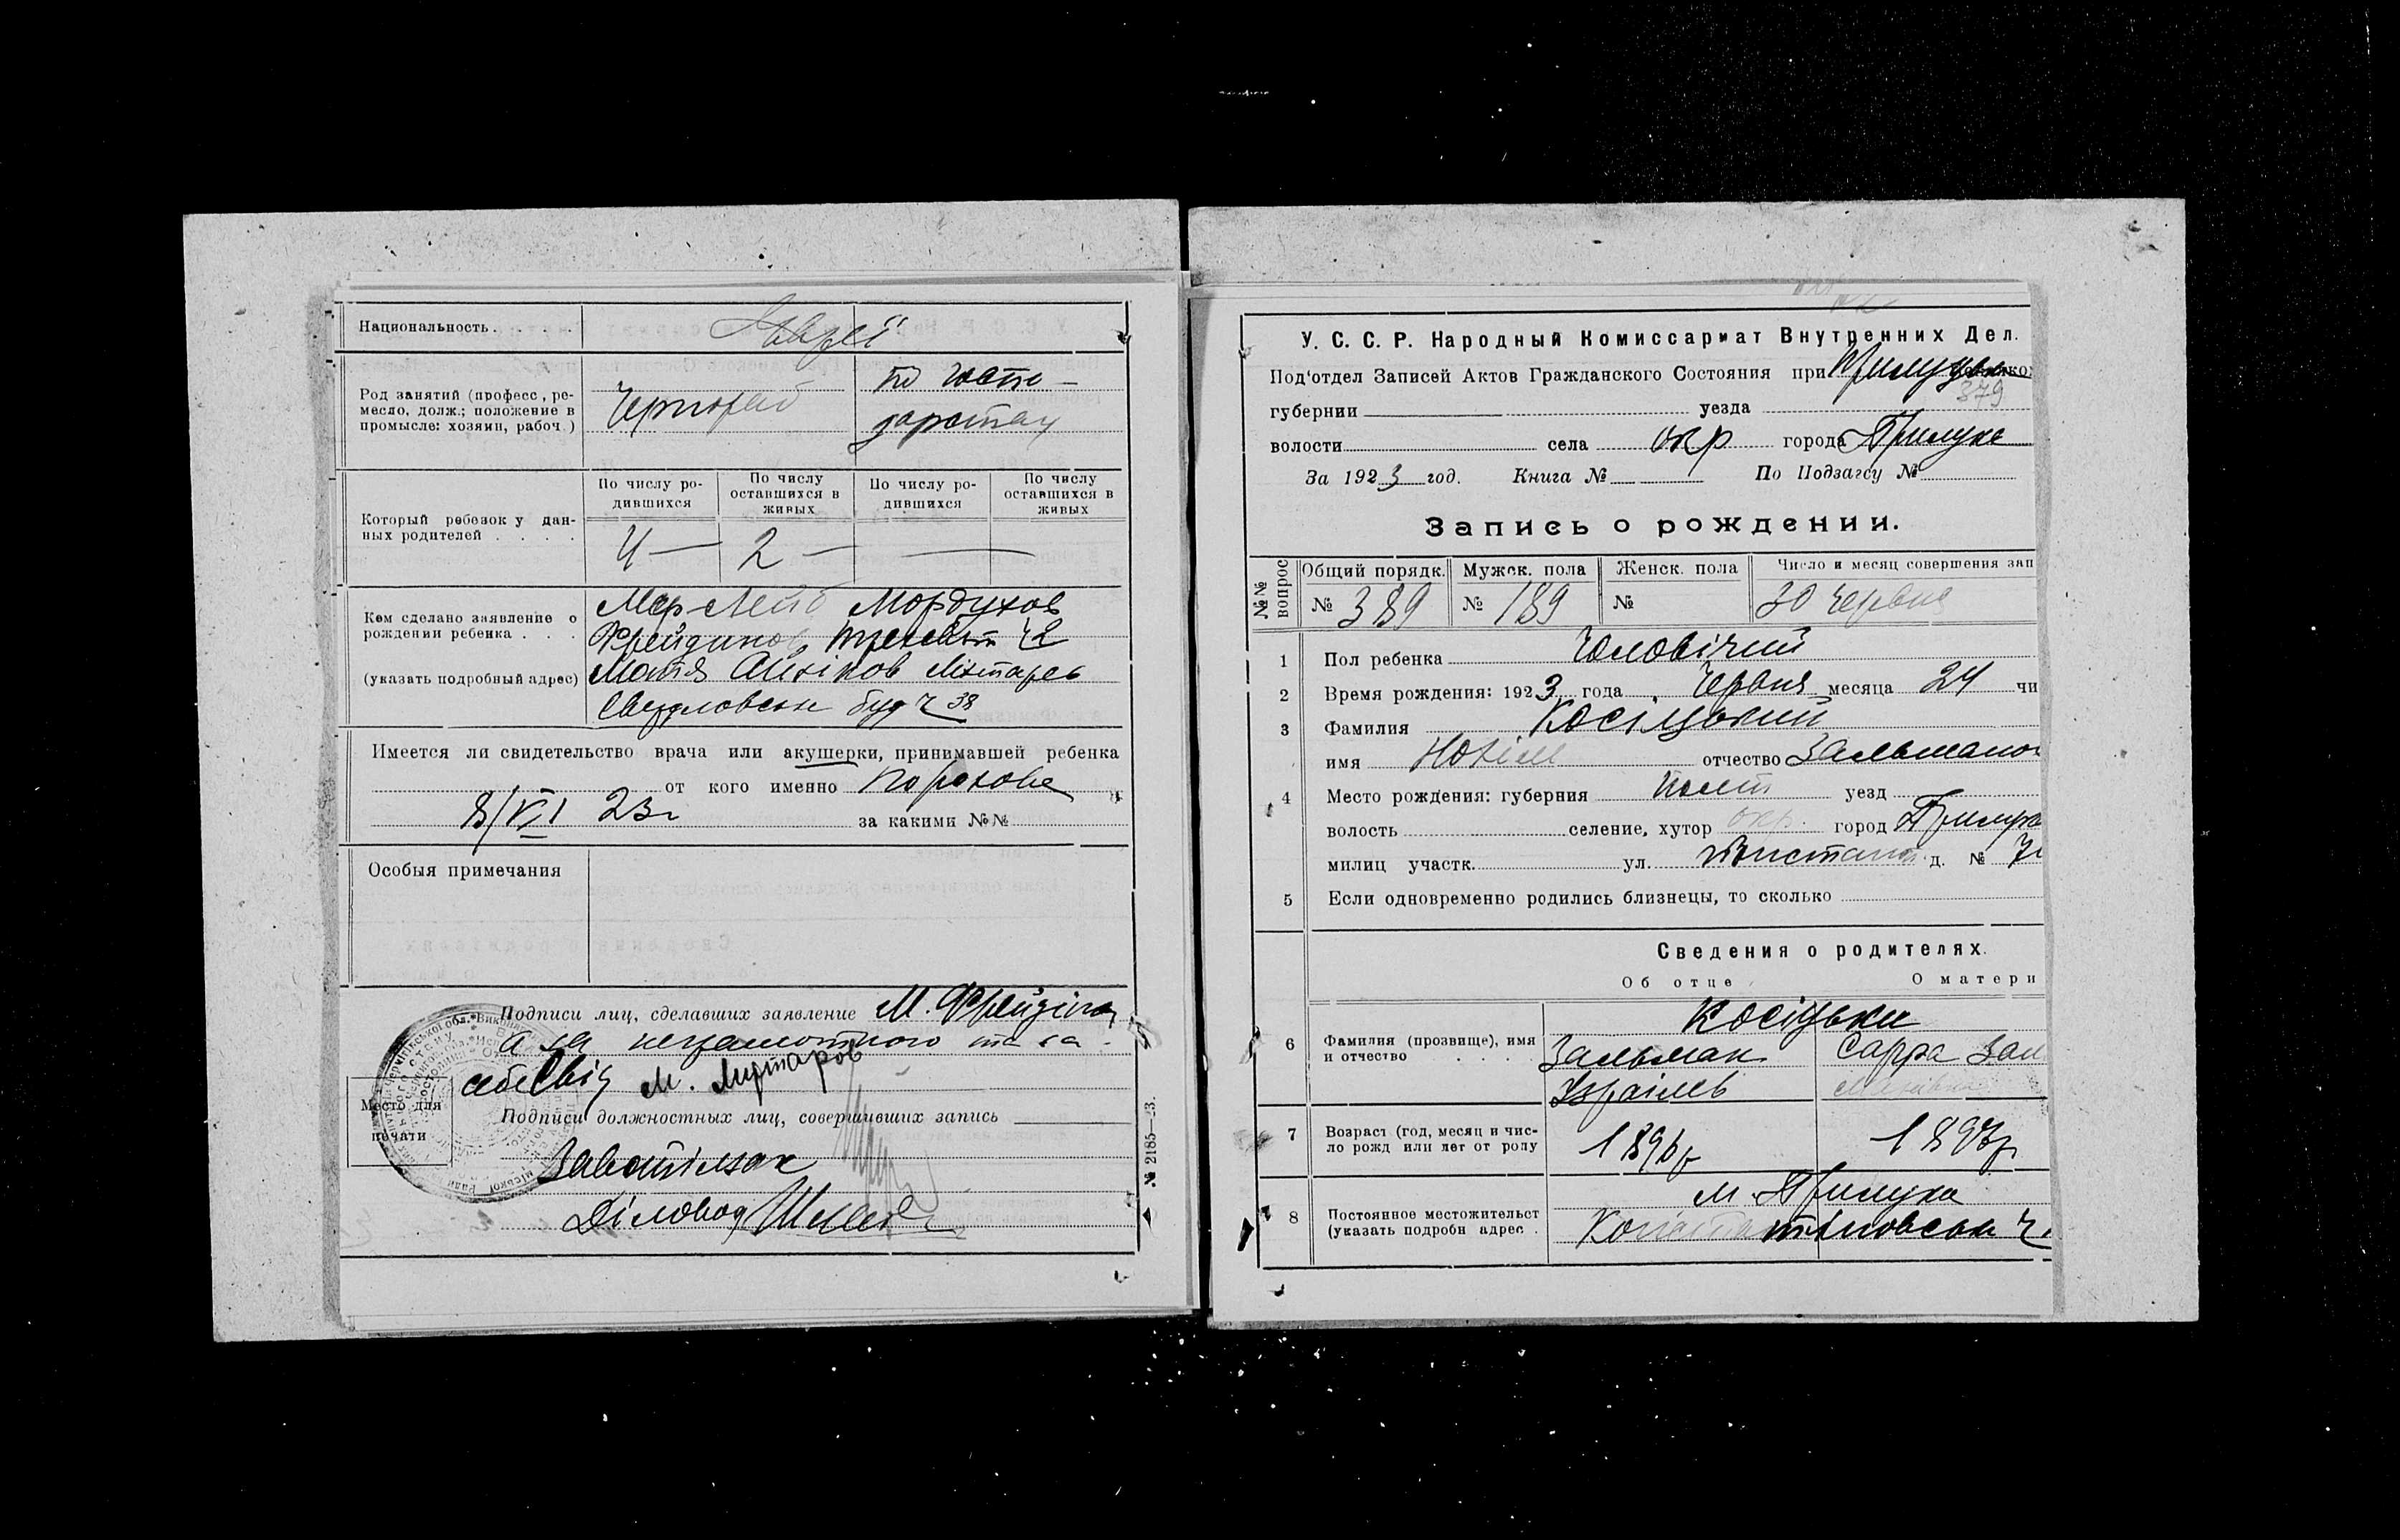 Национальность.
Евреї
Род занятий (професс, ре-
месло, долж.; положение в
промысле: хозяин, рабоч.)
Чорнороб
по госпо-
дарст
Который ребенок у дан-
ных родителей . . . .
По числу ро-
дившихся
По числу
оставшихся в
живых
По числу ро-
дившихся
По числу
оставшихся в
живых
4 — 2 —
Кем сделано заявление о
рождении ребенка . . .
(указать подробный адрес)
Мер-Лейб Мордухов
Фрейдинов Ч 2
Мотя Мітарев
Свердловськ буд Ч 38
Имеется ли свидетельство врача или акушерки, принимавшей ребенка
от кого именно
8/VI 23 г за какими №№
Особыя примечания
Подписи лиц, сделавших заявление М.
А за неграмотного та за
себе М.
Место для
печати
Подписи должностных лиц, совершивших запись
Діловод
№ 2185—23.
У. С. С. Р. Народный Комиссариат Внутренних Дел.
Под'отдел Записей Актов Гражданского Состояния при
379
губернии уезда
волости села окр города Прилуки
За 1923 год. Книга № По Подзагсу №
Запись о рождении.
№№ вопрос
Общий порядк.
№ 389
Мужск. пола
№ 189
Женск. пола
№
Число и месяц совершения зап
30 червня
1 Пол ребенка Чоловічий
2 Время рождения: 1923 года Червня месяца 24 чи
3 Фамилия Косіцький
имя отчество Зальманов
4 Место рождения: губерния Полт уезд
волость селение, хутор окр. город Прилука
милиц участк. ул. д. № 7
5 Если одновременно родились близнецы, то сколько
Сведения о родителях.
Об отце О матери
6 Фамилия (прозвище), имя
и отчество . . . .
Косіцьки
Зальман
Ізраілев
Сарра
7 Возраст (год, месяц и чис-
ло рожд или лет от роду
1896 р
1897 р
8 Постоянное местожительст
(указать подробн адрес .
м. Прилука
Константиновськ Ч